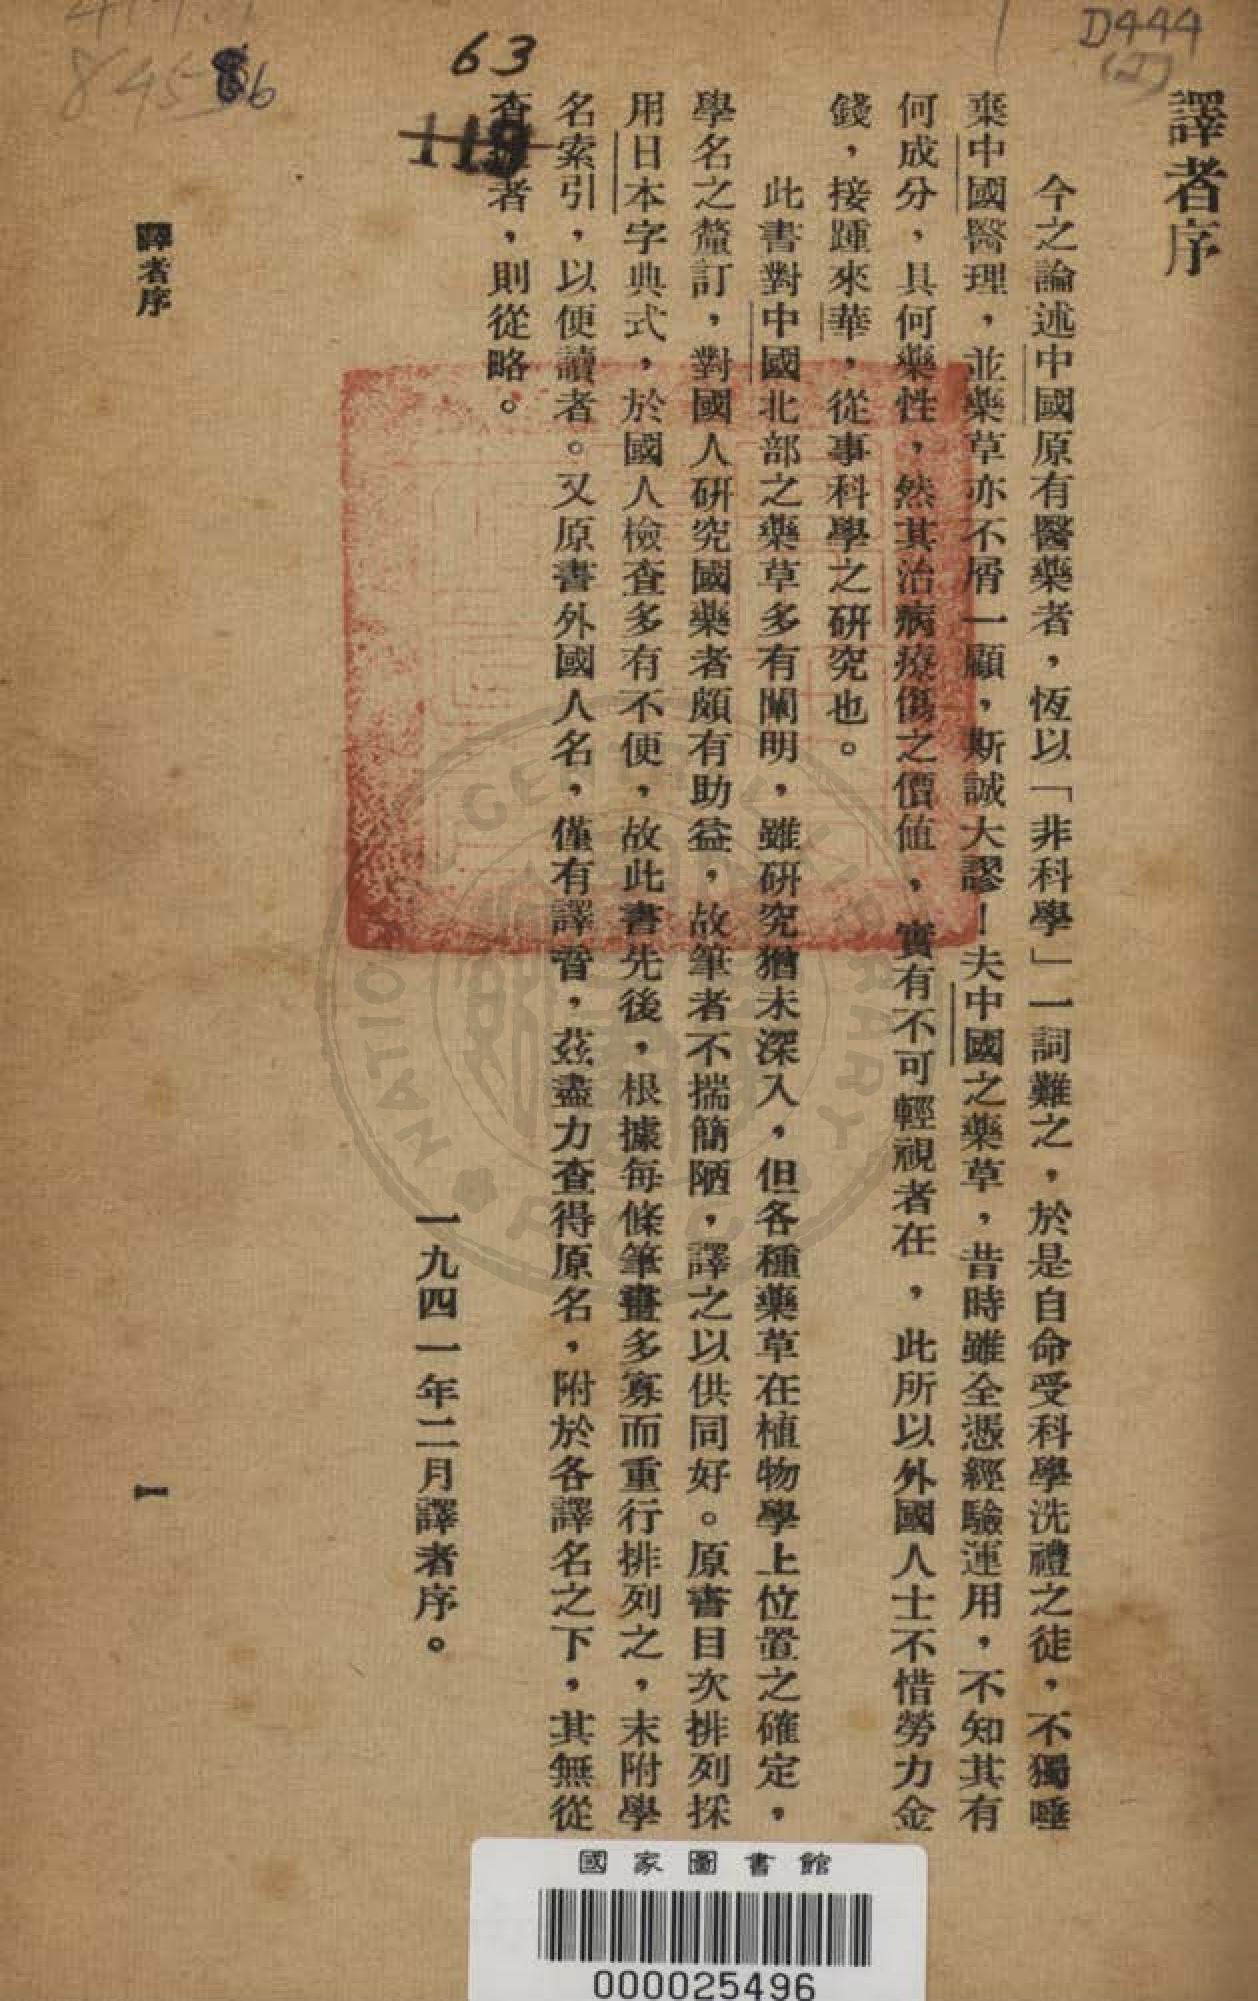 D444
(2)
63
119
譯者序
今之論述中國原有醫藥者，恆以「非科學」一詞難之，於是自命受科學洗禮之徒，不獨唾
棄中國醫理，並藥草亦不屑一顧，斯誠大謬！夫中國之藥草，昔時雖全憑經驗運用，不知其有
何成分，具何藥性，然其治病療傷之價值，實有不可輕視者在，此所以外國人士不惜勞力金
錢，接踵來華，從事科學之研究也。
此書對中國北部之藥草多有闡明，雖研究猶未深入，但各種藥草在植物學上位置之確定，
學名之釐訂，對國人研究國藥者頗有助益，故筆者不揣簡陋，譯之以供同好。原書目次排列採
用日本字典式，於國人檢查多有不便，故此書先後，根據每條筆畫多寡而重行排列之，末附學
名索引，以便讀者。又原書外國人名，僅有譯音，茲盡力查得原名，附於各譯名之下，其無從
查 者，則從略。
一九四一年二月譯者序。
譯者序
1
NATIONAL CENTRAL LIBRARY
R.O.C.
國家圖書館
000025496